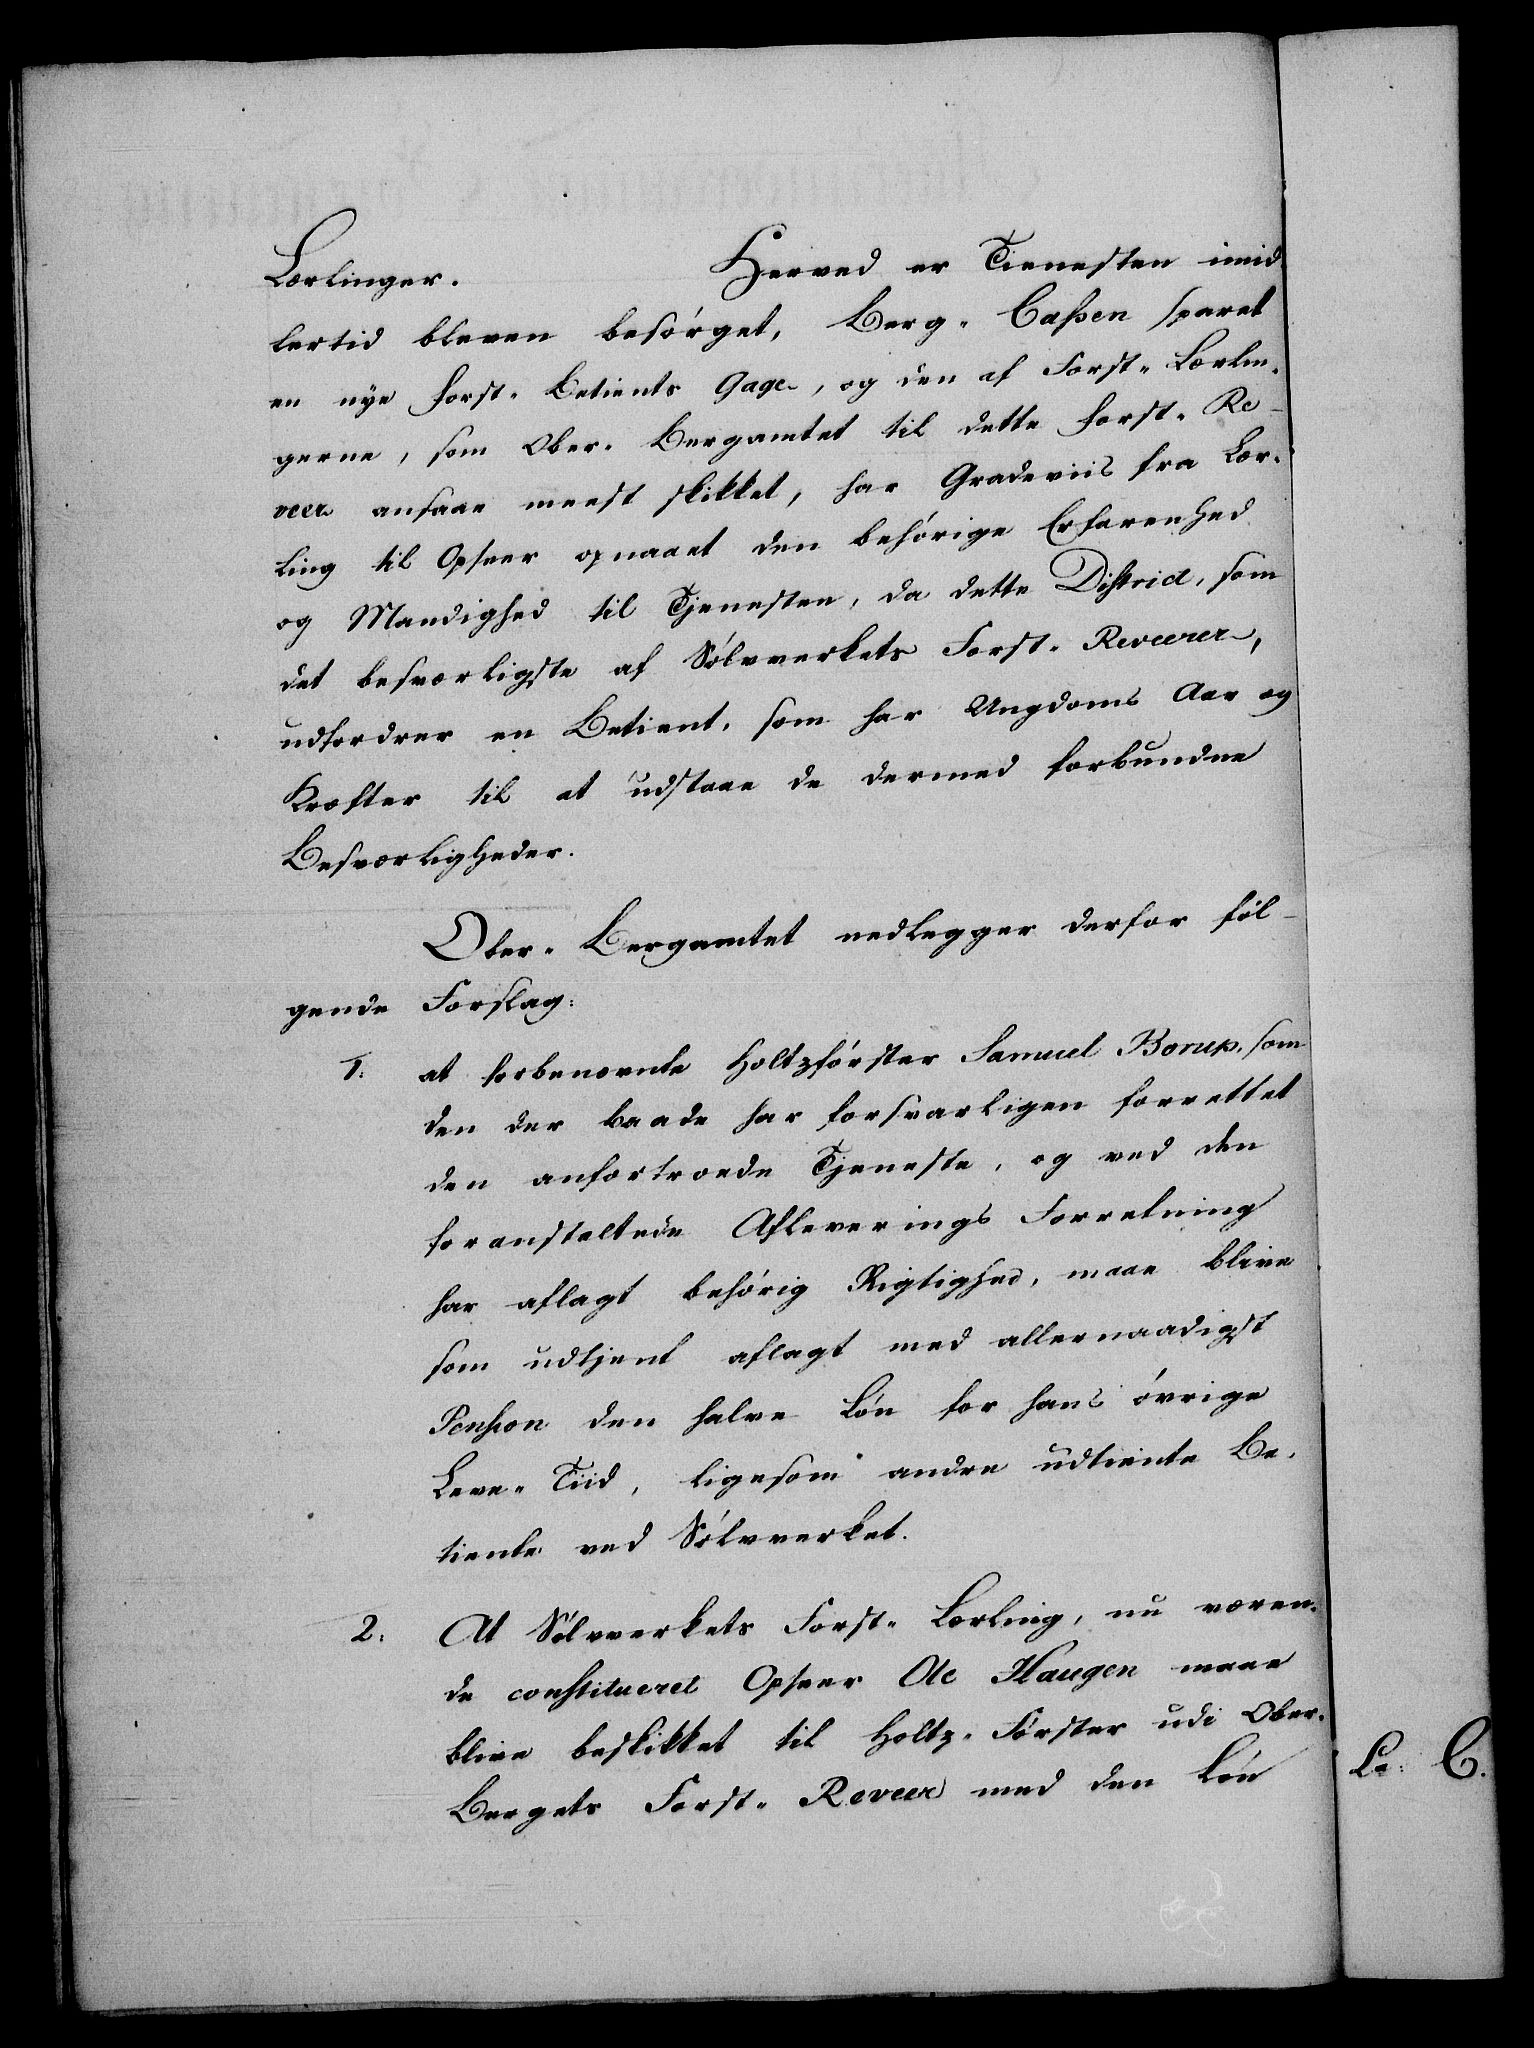 Lærlinger. Herved er Tienesten imid
lertid bleven besørget, Berg-Cassen sparet
en nye Forst-Betients Gage, og den af Forst-Lærlin-
gerne, som Ober-Bergamtet til dette Forst-Re-
veer ansaae meest skikket, har Gradeviis fra Lær-
ling til Opseer opnaaet den behørige Erfarenhed
og Mandighed til Tjenesten, da dette District, som
det besværligste af Sølvverkets Forst-Reveerer,
udfordrer en Betient, som har Ungdoms Aar og
Kræfter til at udstaae de dermed forbundne
Besværligheder.
Ober-Bergamtet nedlegger derfor føl-
gende Forslag:
1: at forbenævnte Holtzførster Samuel Borup, som
den der baade har forsvarligen forrettet
den anfortroede Tjeneste, og ved den
foranstaltede Afleverings Forretning
har aflagt behørig Rigtighed, maae blive
som udtjent aflagt med allernaadigst
Pension den halve Løn for hans øvrige
Leve-Tiid, ligesom andre udtiente Be-
tiente ved Sølvverket.
2: At Sølvverkets Forst-Lærling, nu væren-
de constitueret Opseer Ole Haugen maae
blive beskikket til Holtz-Førster udi Ober-
Bergets Forst-Reveer med den Løn
La: C.